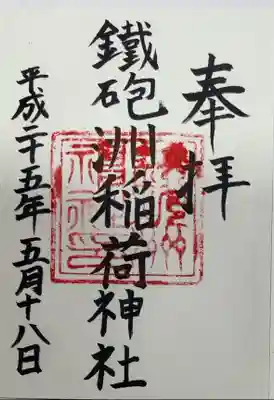 奉拝
鐵砲洲稲荷神社
平成二十五年 五月十八日